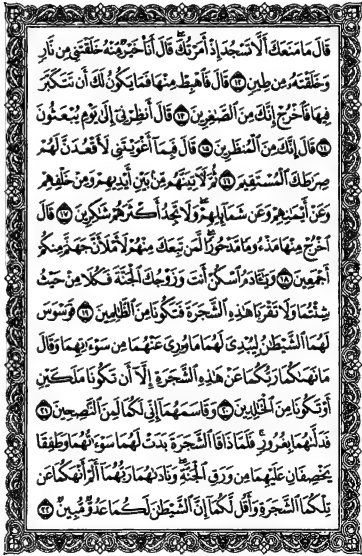 قَالَ مَا مَنَعَكَ أَلَّا تَسْجُدَ إِذْ أَمَرْتُكَ قَالَ أَنَا۠ خَيْرٌ مِّنْهُ خَلَقْتَنِى مِن نَّارٍ
وَخَلَقْتَهُۥ مِن طِينٍ ١٢ قَالَ فَٱهْبِطْ مِنْهَا فَمَا يَكُونُ لَكَ أَن تَتَكَبَّرَ
فِيهَا فَٱخْرُجْ إِنَّكَ مِنَ ٱلصَّٰغِرِينَ ١٣ قَالَ أَنظِرْنِىٓ إِلَىٰ يَوْمِ يُبْعَثُونَ
١٤ قَالَ إِنَّكَ مِنَ ٱلْمُنظَرِينَ ١٥ قَالَ فَبِمَآ أَغْوَيْتَنِى لَأَقْعُدَنَّ لَهُمْ
صِرَٰطَكَ ٱلْمُسْتَقِيمَ ١٦ ثُمَّ لَءَاتِيَنَّهُم مِّنۢ بَيْنِ أَيْدِيهِمْ وَمِنْ خَلْفِهِمْ
وَعَنْ أَيْمَٰنِهِمْ وَعَن شَمَآئِلِهِمْ وَلَا تَجِدُ أَكْثَرَهُمْ شَٰكِرِينَ ١٧ قَالَ
ٱخْرُجْ مِنْهَا مَذْءُومًا مَّدْحُورًا لَّمَن تَبِعَكَ مِنْهُمْ لَأَمْلَأَنَّ جَهَنَّمَ مِنكُمْ
أَجْمَعِينَ ١٨ وَيَٰٓـَٔادَمُ ٱسْكُنْ أَنتَ وَزَوْجُكَ ٱلْجَنَّةَ فَكُلَا مِنْ حَيْثُ
شِئْتُمَا وَلَا تَقْرَبَا هَٰذِهِ ٱلشَّجَرَةَ فَتَكُونَا مِنَ ٱلظَّٰلِمِينَ ١٩ فَوَسْوَسَ
لَهُمَا ٱلشَّيْطَٰنُ لِيُبْدِىَ لَهُمَا مَا وُۥرِىَ عَنْهُمَا مِن سَوْءَٰتِهِمَا وَقَالَ
مَا نَهَىٰكُمَا رَبُّكُمَا عَنْ هَٰذِهِ ٱلشَّجَرَةِ إِلَّآ أَن تَكُونَا مَلَكَيْنِ
أَوْ تَكُونَا مِنَ ٱلْخَٰلِدِينَ ٢٠ وَقَاسَمَهُمَآ إِنِّى لَكُمَا لَمِنَ ٱلنَّٰصِحِينَ ٢١
فَدَلَّىٰهُمَا بِغُرُورٍ فَلَمَّا ذَاقَا ٱلشَّجَرَةَ بَدَتْ لَهُمَا سَوْءَٰتُهُمَا وَطَفِقَا
يَخْصِفَانِ عَلَيْهِمَا مِن وَرَقِ ٱلْجَنَّةِ وَنَادَىٰهُمَا رَبُّهُمَآ أَلَمْ أَنْهَكُمَا عَن
تِلْكُمَا ٱلشَّجَرَةِ وَأَقُل لَّكُمَآ إِنَّ ٱلشَّيْطَٰنَ لَكُمَا عَدُوٌّ مُّبِينٌ ٢٢